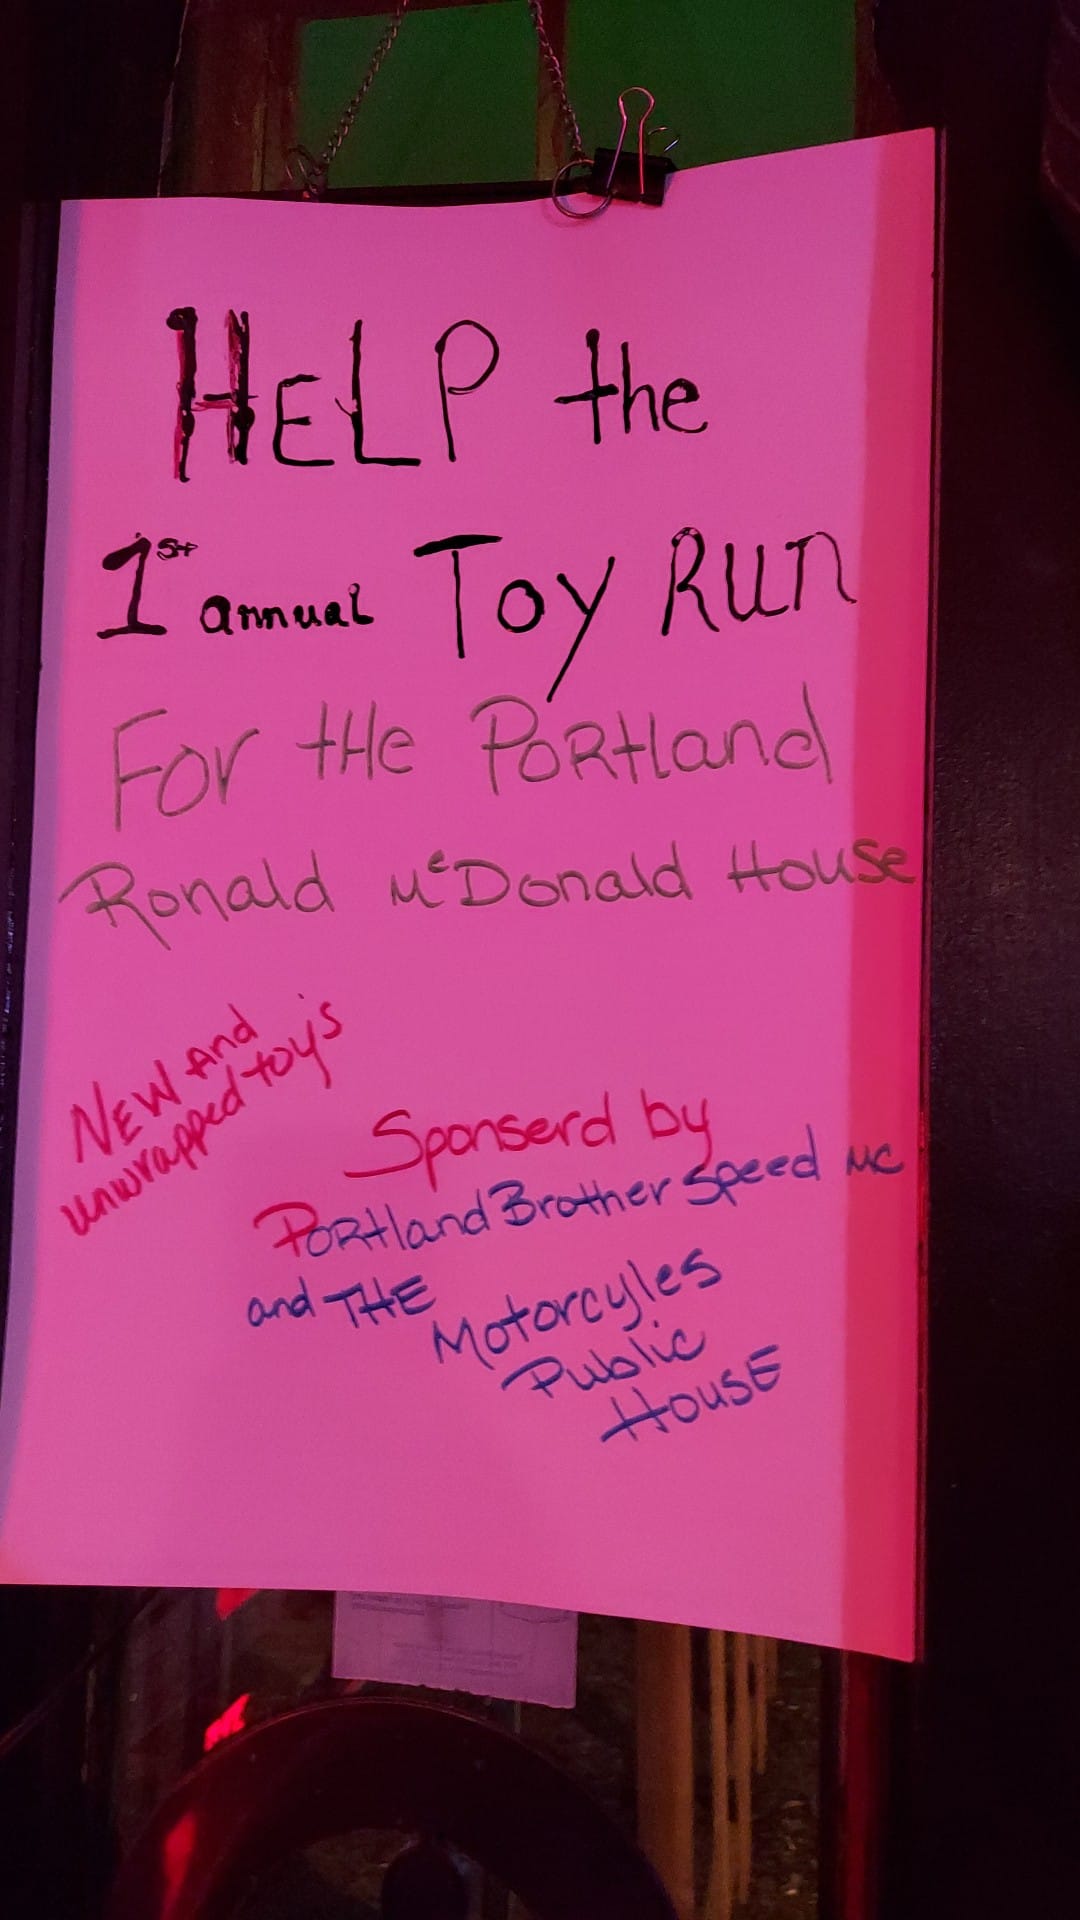 HELP the
1st annual Toy Run
For tHe PoRtland
Ronald McDonald House
NEW And
unwrapped toy's
Sponserd by
PoRtland Brother Speed MC
and THE
Motorcyles
Public
HousE